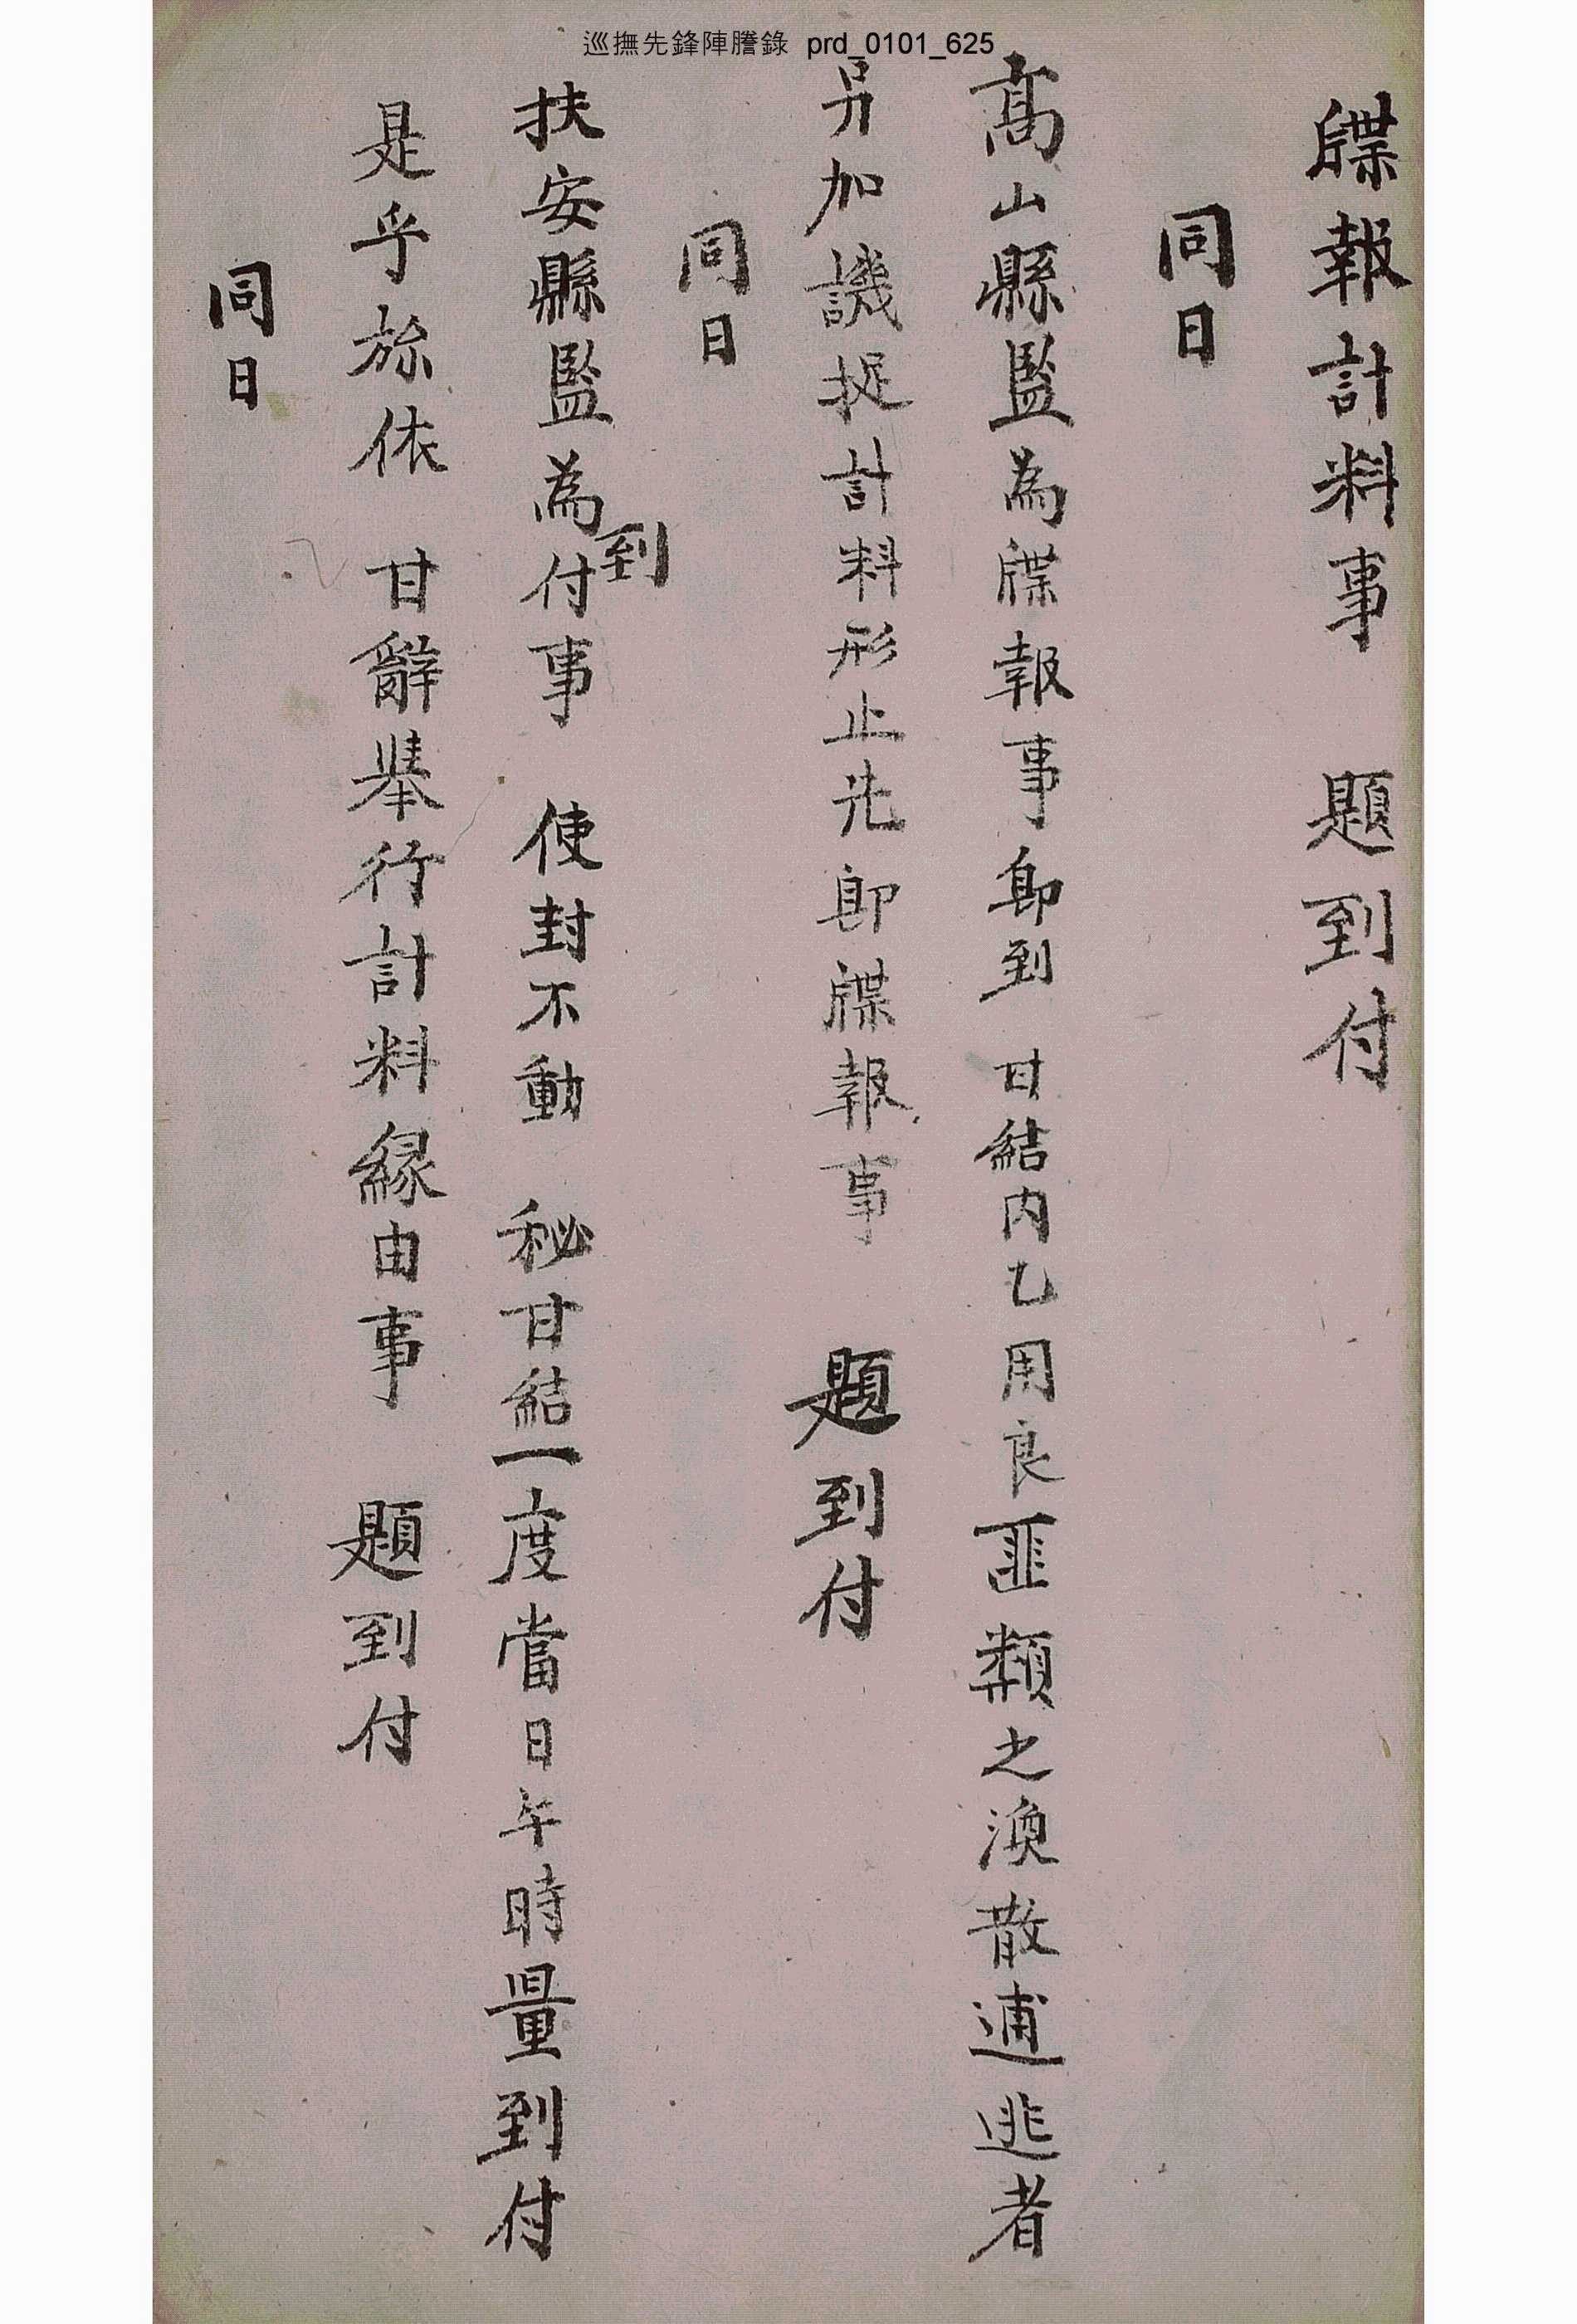 巡撫先鋒陣謄錄 prd_0101_625
牒報計料事 題到付
同日
高山縣監為牒報事卽到 甘結內乙用良匪類之渙散逋逃者
另加譏捉計料形止先卽牒報事 題到付
同日
扶安縣監為到付事 使封不動 秘甘結一度當日午時量到付
是乎旀依 甘辭擧行計料緣由事 題到付
同日